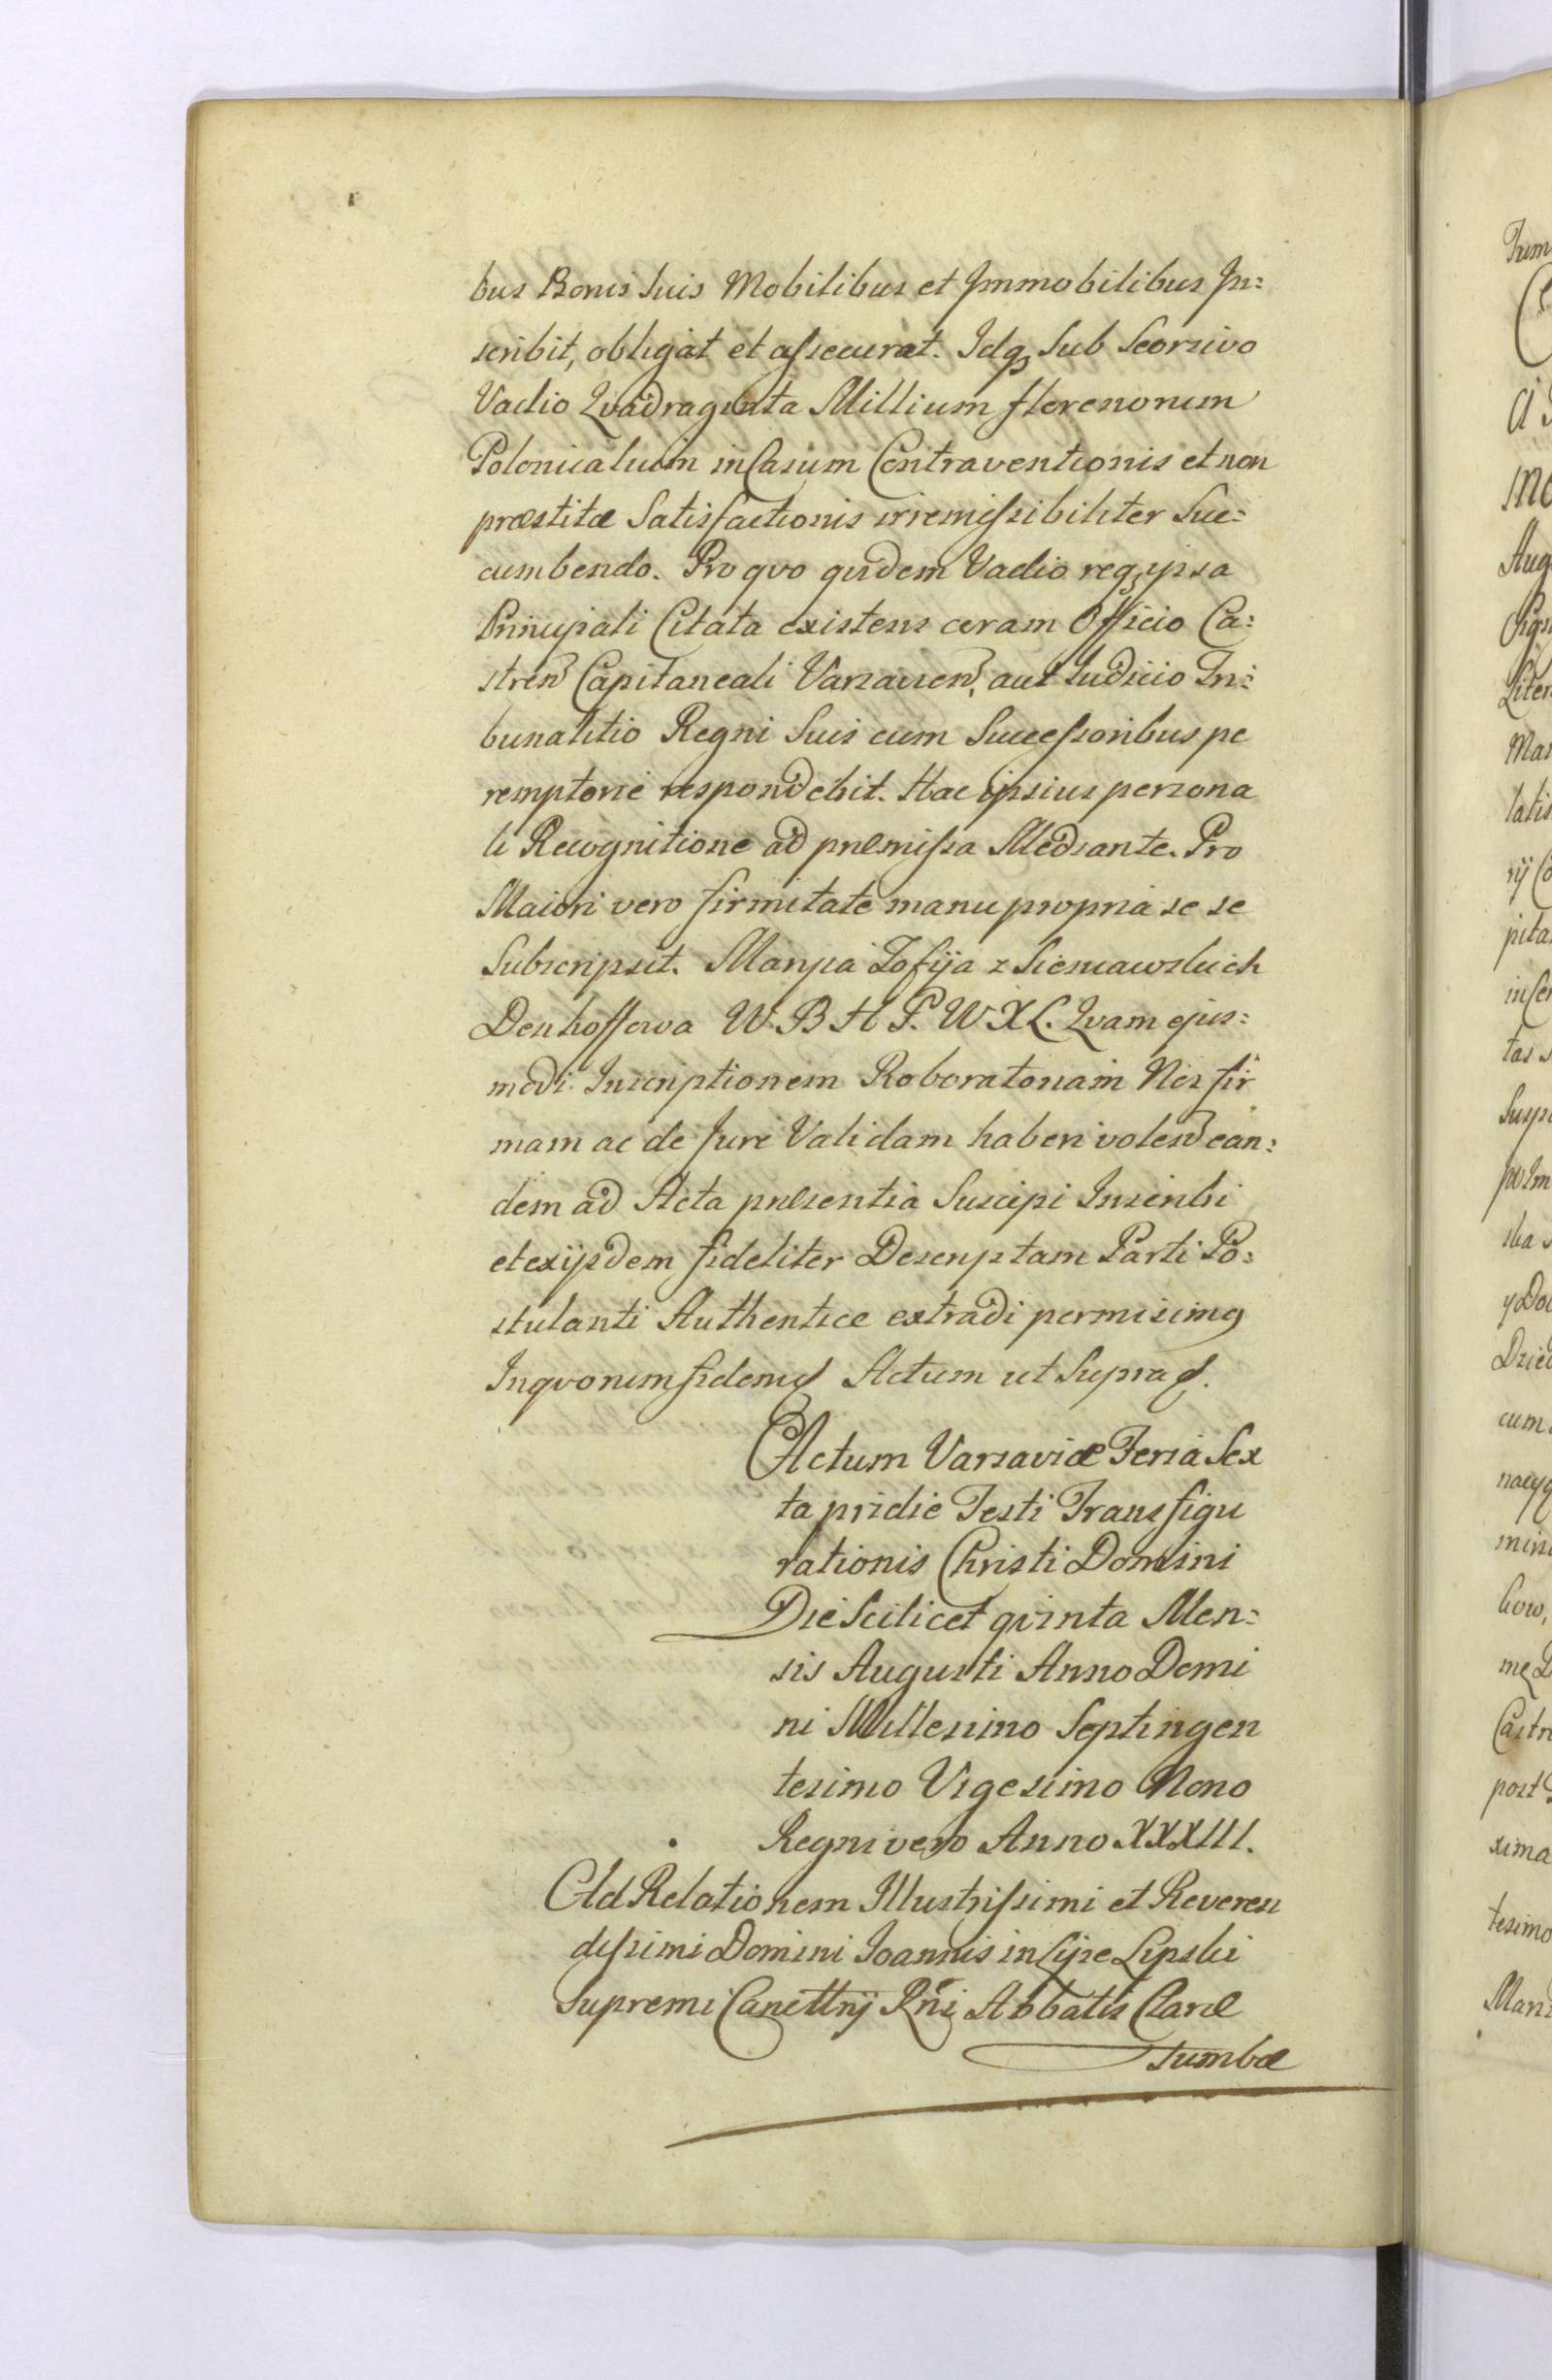 bus Bonis Suis Mobilibus et Immobilibus In:
scribit, obligat et assecurat. Idq. Sub Seorsivo
Vadio Qvadraginta Millium florenorum
Polonicalium in Casum Contraventionis et non
præstitæ Satisfactionis irremissibiliter Suc:
cumbendo. Pro qvo qvidem Vadio req. ipsa
Principali Citata existens coram Officio Ca:
stren Capitaneali Varsavien, aut Iudicio Tri:
bunalitio Regni Suis cum Successoribus pe
remptorie respondebit. Hac ipsius persona
li Recognitione ad præmissa Mediante. Pro
Maiori vero firmitate manu propria se se
Subscripsit. Maryia Zofija z Sieniawskich
Denhoffowa W. B H P. W X L. Qvam ejus:
modi Inscriptionem Roboratoriam Nos fir
mam ac de Jure Validam haberi volen ean:
dem ad Acta præsentia Suscipi Inscribi
et ex ijsdem fideliter Descriptam Parti Po:
stulanti Authentice extradi permisimg
In qvorum fidem Actum ut Supra
Actum Varsaviæ Feria Sex
ta pridie Festi Transfigu
rationis Christi Domini
Die Scilicet qvinta Men:
sis Augusti Anno Domi
ni Millesimo Septingen
tesimo Vigesimo Nono
Regni vero Anno XXXIII.
Ad Relationem Illustrissimi et Reveren
dissimi Domini Ioannis in Lipe Lipski
Supremi Cancttrij Rni Abbatis Claræ
Tumbæ